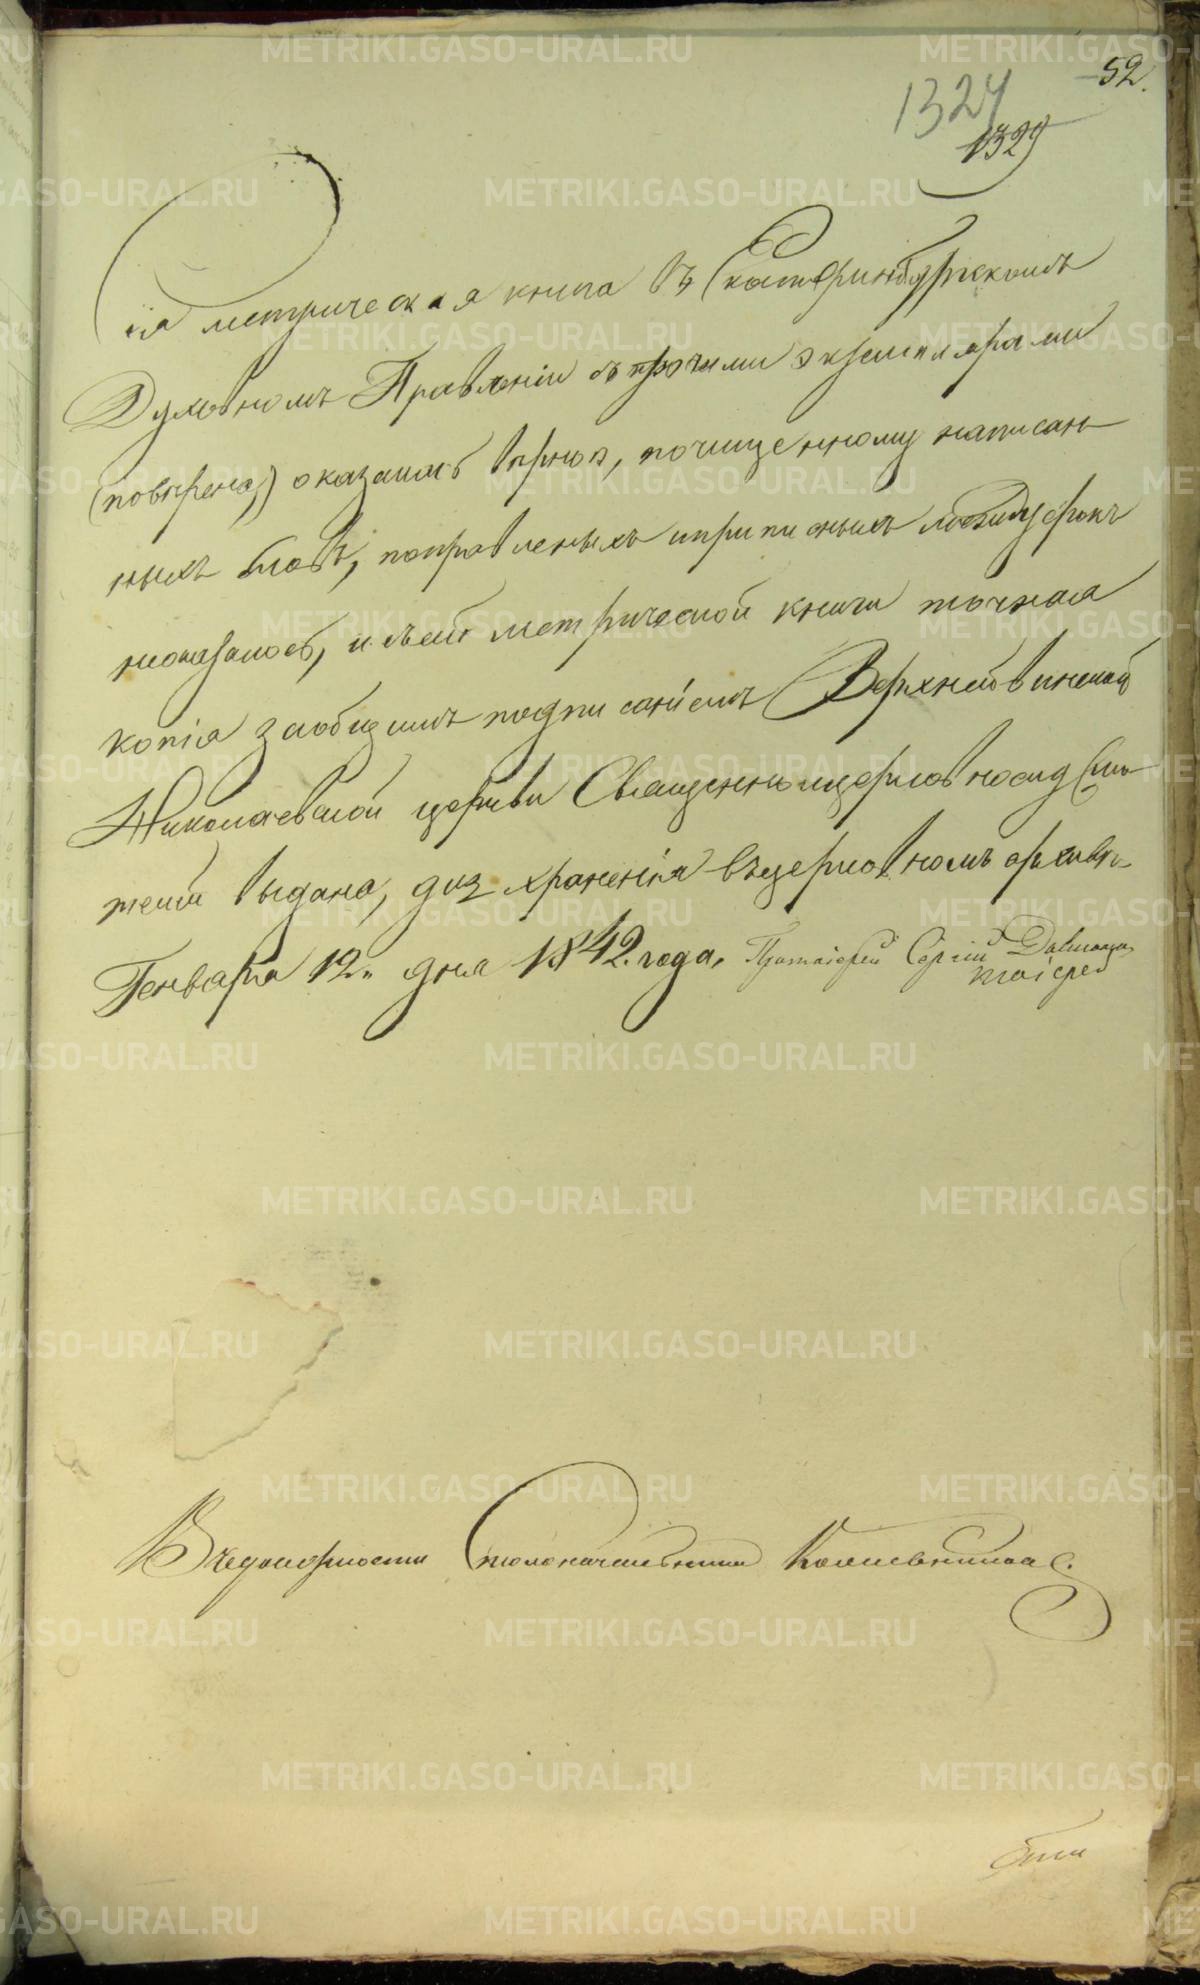 52.
1324
1329
Сія метрическая книга въ Екатеринбургскомъ
Духовномъ Правленіи съ прочими экземплярами
(повѣрена,) оказалась вѣрною, почищенному написан-
ныхъ словъ, поправленыхъ иприписныхъ
неоказалось, исъсей метрической книги точная
копія заобщимъ подписаніемъ
Николаевской церкви Священноцерковнослу-
жители выдана, для храненія въцерковномъ архивѣ
Генваря 12. дня 1842. года, Протоіерей Сергій
Вчедолжности Столоначальника